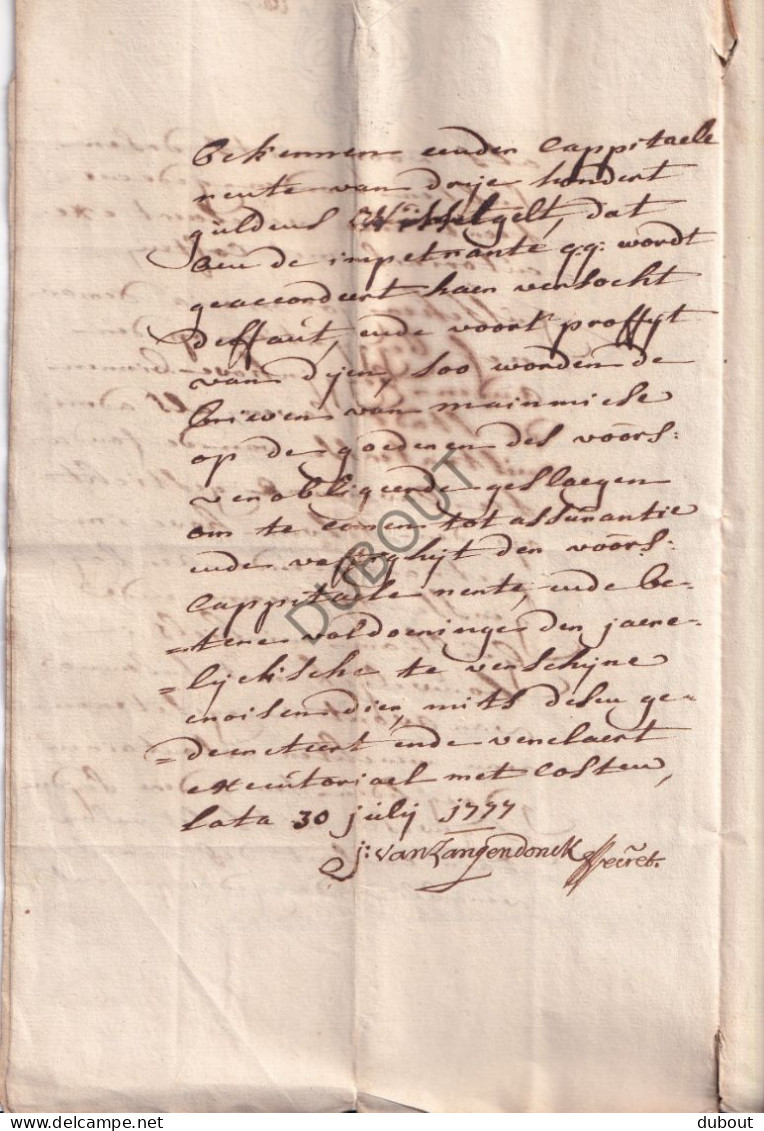 bekennen eender cappitaele
rente van drije hondert
guldens Wisselgelt, dat
aen de impetrante q.q. wordt
geaccordeert haer versocht
deffaut, ende voort proffyt
van dijen, soo worden de
brieven van mainmiese
op de goederen des voors:
verobligeerde geslaegen
om te comen tot assurantie
ende den voors:
cappitaele rente, ende be-
=tere voldoeninge den jaere-
=lijcksche te verschijne
croisen dier, mits desen ge-
=decreteert ende verclaert
executoriael met costen,
Lata 30 julij 1777
j: van Langendonck Secret.
DUBOUT
dubout